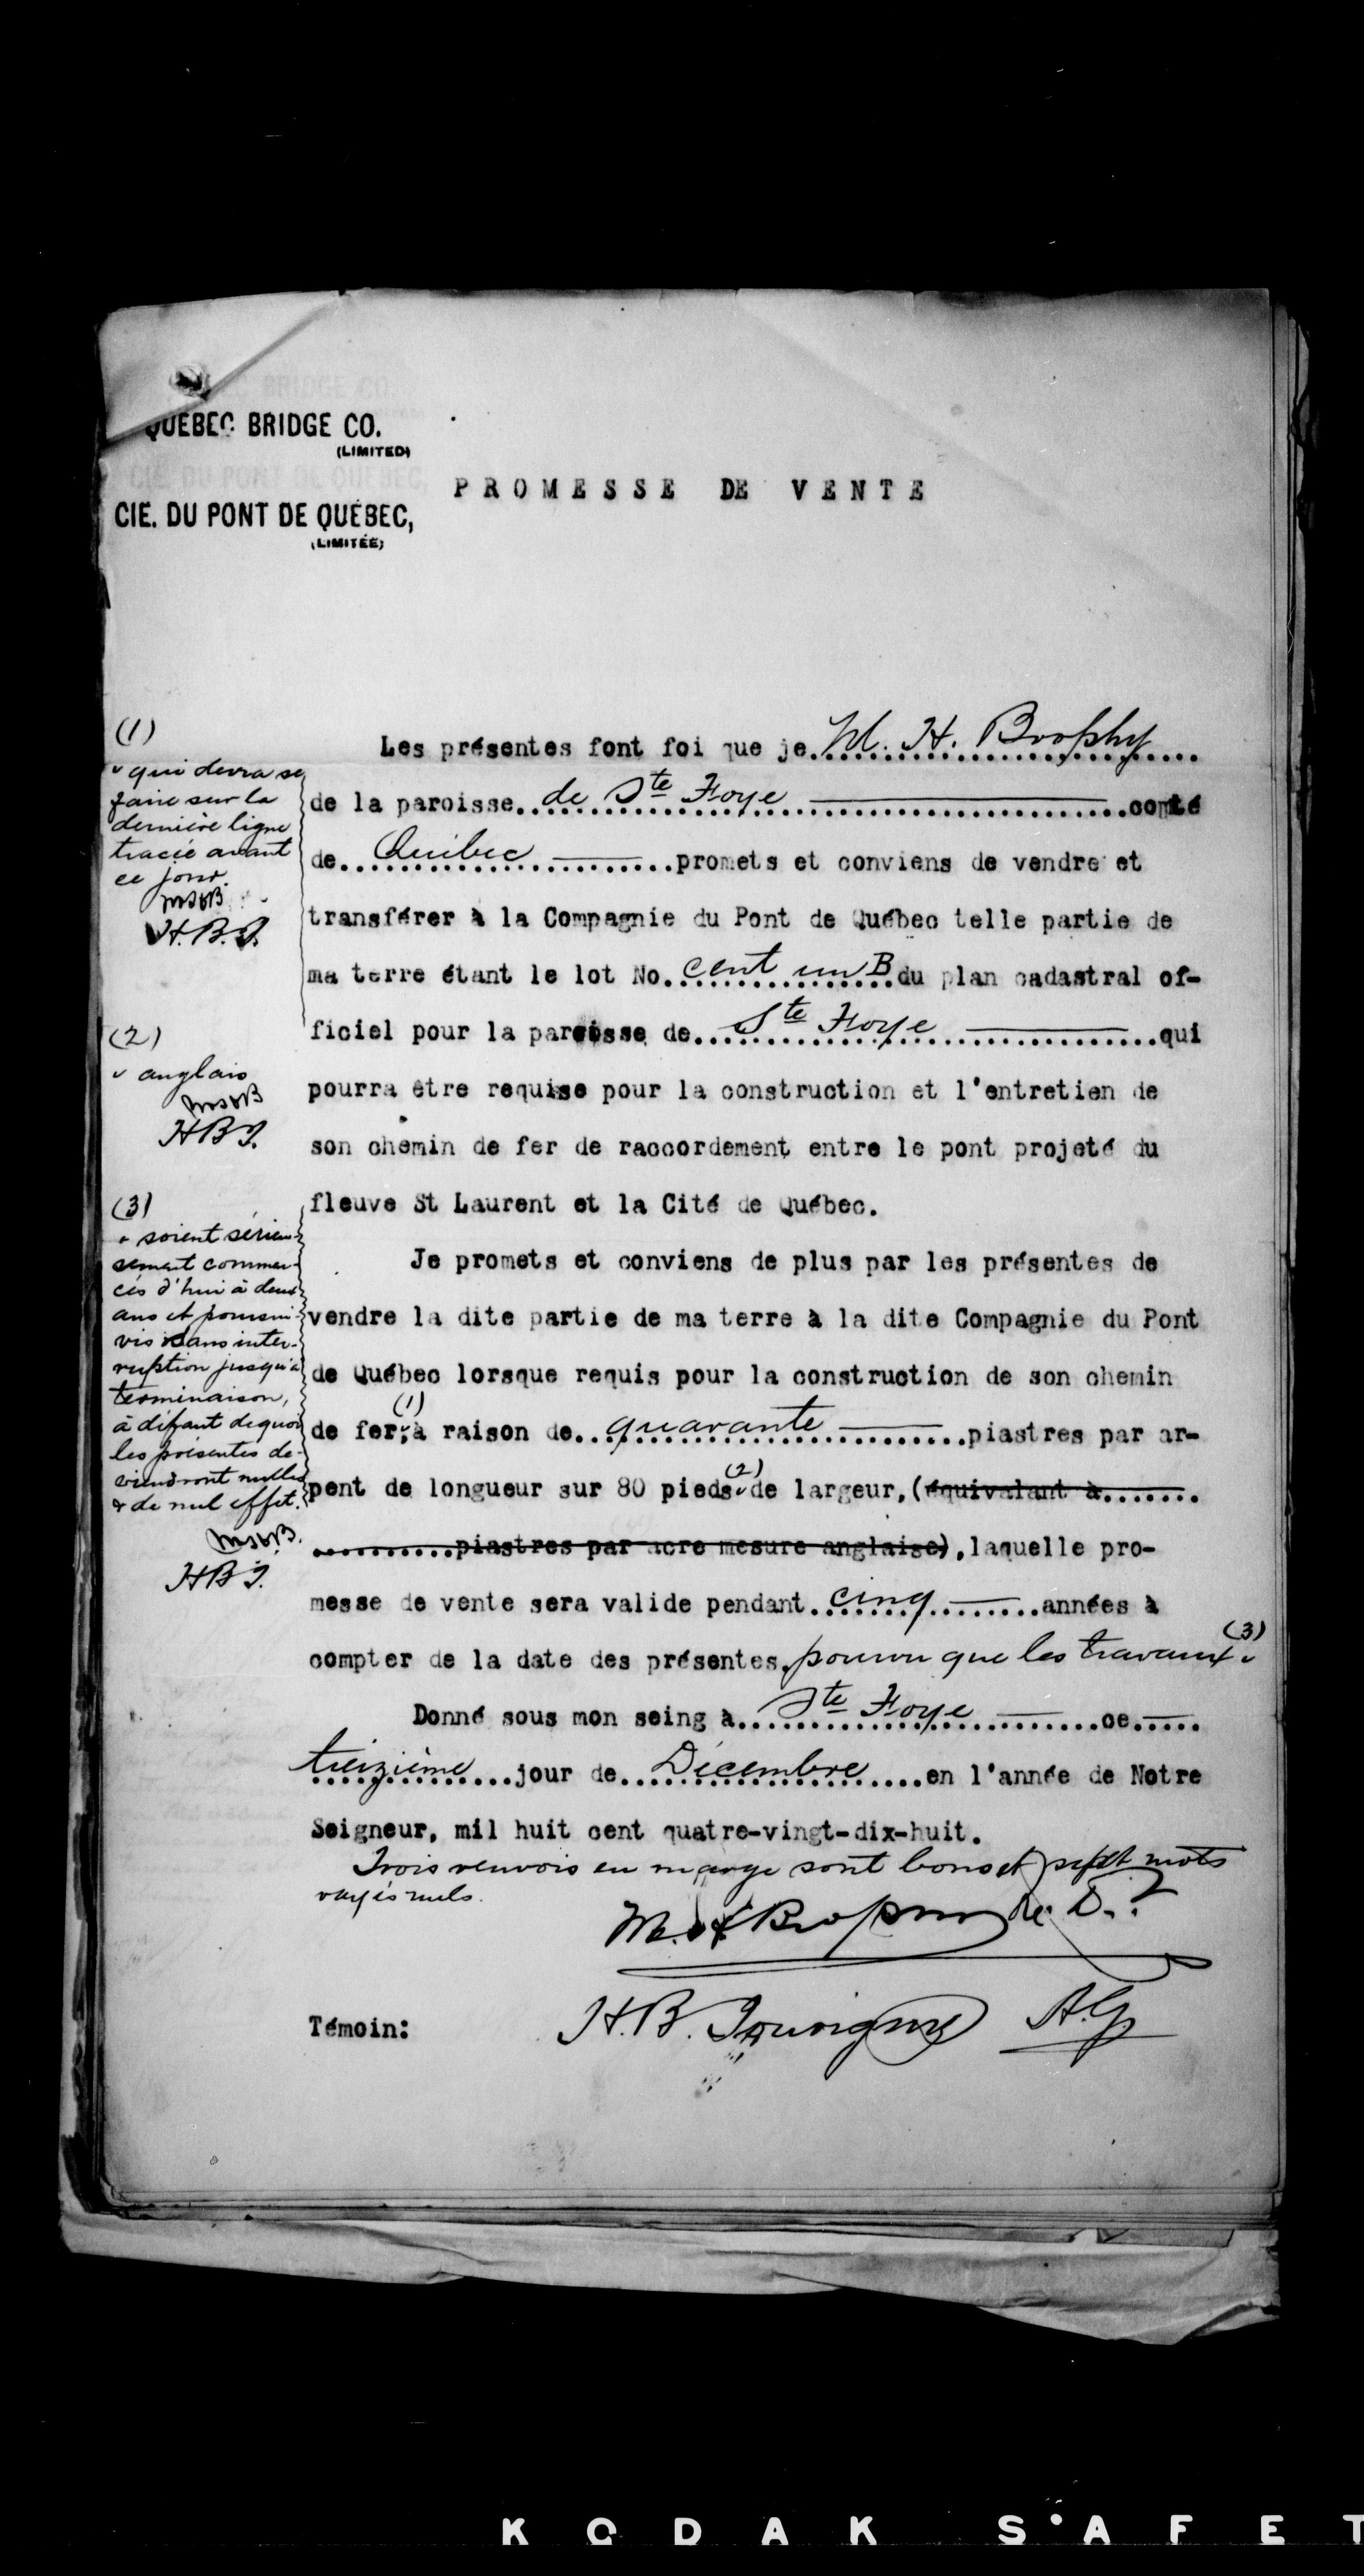 QUÉBEC BRIDGE CO.
(LIMITED)
CIE. DU PONT DE QUÉBEC,
(LIMITÉE)
PROMESSE DE VENTE
(1)
qui devra se
faire sur la
dernière ligne
tracée avant
ce jour.
H.B.J.
(2)
anglais
HBJ.
(3)
soient sérieu-
sement commen-
cés d'hui à deux
ans et poursui-
vis sans inter-
ruption jusqu'à
terminaison,
à défaut de quoi
les présentes de-
viendront nulles
& de nul effet.
HBJ.
Les présentes font foi que je M. H. Brophy
de la paroisse de Ste Foye comté
de Québec promets et conviens de vendre et
transférer à la Compagnie du Pont de Québec telle partie de
ma terre étant le lot No. cent un B du plan cadastral of-
ficiel pour la paroisse de Ste Foye qui
pourra être requise pour la construction et l'entretien de
son chemin de fer de raccordement entre le pont projeté du
fleuve St Laurent et la Cité de Québec.
Je promets et conviens de plus par les présentes de
vendre la dite partie de ma terre à la dite Compagnie du Pont
de Québec lorsque requis pour la construction de son chemin
de fer, (1) à raison de quarante piastres par ar-
pent de longueur sur 80 pieds (2) de largeur, (équivalant à........
..........piastres par acre mesure anglaise), laquelle pro-
messe de vente sera valide pendant cinq années à
compter de la date des présentes, pourvu que les travaux (3)
Donné sous mon seing à Ste Foye ce
treizième jour de Décembre en l'année de Notre
Seigneur, mil huit cent quatre-vingt-dix-huit.
Trois renvois en marge sont bons et sept mots
rayés nuls.
M. H. Brophy
Témoin: H.B.
KODAK SAFET